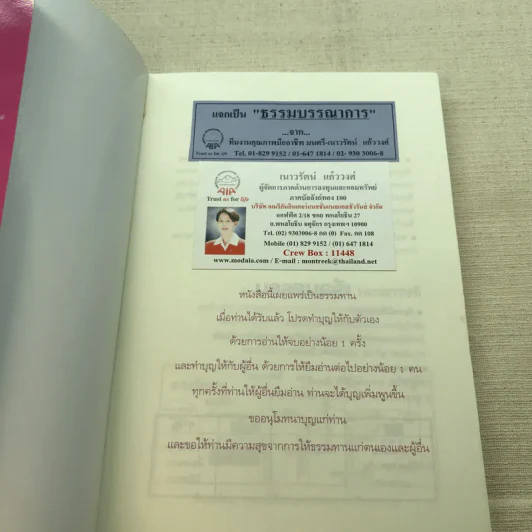 แจกเป็น "ธรรมบรรณาการ"
...จาก...
ทีมงานคุณภาพมืออาชีพ มนตรี-เนาวรัตน์ แก้ววงศ์
Trust us for life
Tel. 01-829 9152 / 01-647 1814 / 02- 930 3006-8
เนาวรัตน์ แก้ววงศ์
ผู้จัดการภาคด้านการลงทุนและออมทรัพย์
AIA
ภาคบัลลังก์ทอง 180
Trust us for life
บริษัท อเมริกันอินเตอร์เนชชั่นแนลแอสชัวรันส์ จำกัด
ออฟฟิศ 2/18 ซอย พหลโยธิน 27
ถ.พหลโยธิน จตุจักร กรุงเทพฯ 10900
Tel. (02) 9303006-8 กด (0) Fax. กด 108
Mobile (01) 829 9152 / (01) 647 1814
Crew Box : 11448
www.modala.com / E-mail : montreek@thailand.net
หนังสือนี้เผยแพร่เป็นธรรมทาน
เมื่อท่านได้รับแล้ว โปรดทำบุญให้กับตัวเอง
ด้วยการอ่านให้จบอย่างน้อย 1 ครั้ง
และทำบุญให้กับผู้อื่น ด้วยการให้ยืมอ่านต่อไปอย่างน้อย 1 คน
ทุกครั้งที่ท่านให้ผู้อื่นยืมอ่าน ท่านจะได้บุญเพิ่มพูนขึ้น
ขออนุโมทนาบุญแก่ท่าน
และขอให้ท่านมีความสุขจากการให้ธรรมทานแก่ตนเองและผู้อื่น